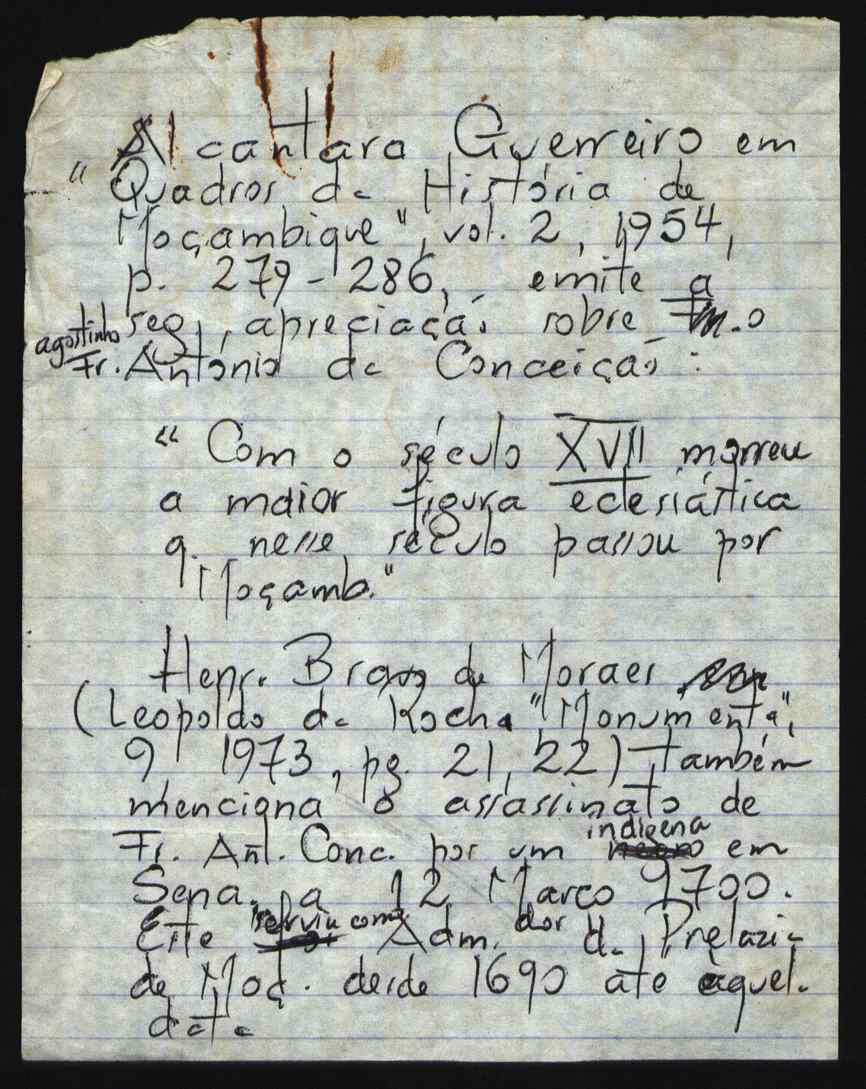 Alcantara Guerreiro em
"Quadros da História de
Moçambique", vol. 2, 1954,
p. 279-286, emite a
seg. apreciação sobre o
agostinho
Fr. António da Conceição:
"Com o século XVII morreu
a maior figura eclesiástica
q. nesse século passou por
Moçamb."
Henr. Bravo de Moraes
(Leopoldo da Rocha "Monumenta",
9 1973, pg. 21, 22) também
menciona o assassinato de
indígena
Fr. Ant. Conc. por um em
Sena, a 12 Março 1700.
serviu como dor
Este Adm. da Prelazia
de Moç. desde 1690 até àquela
data